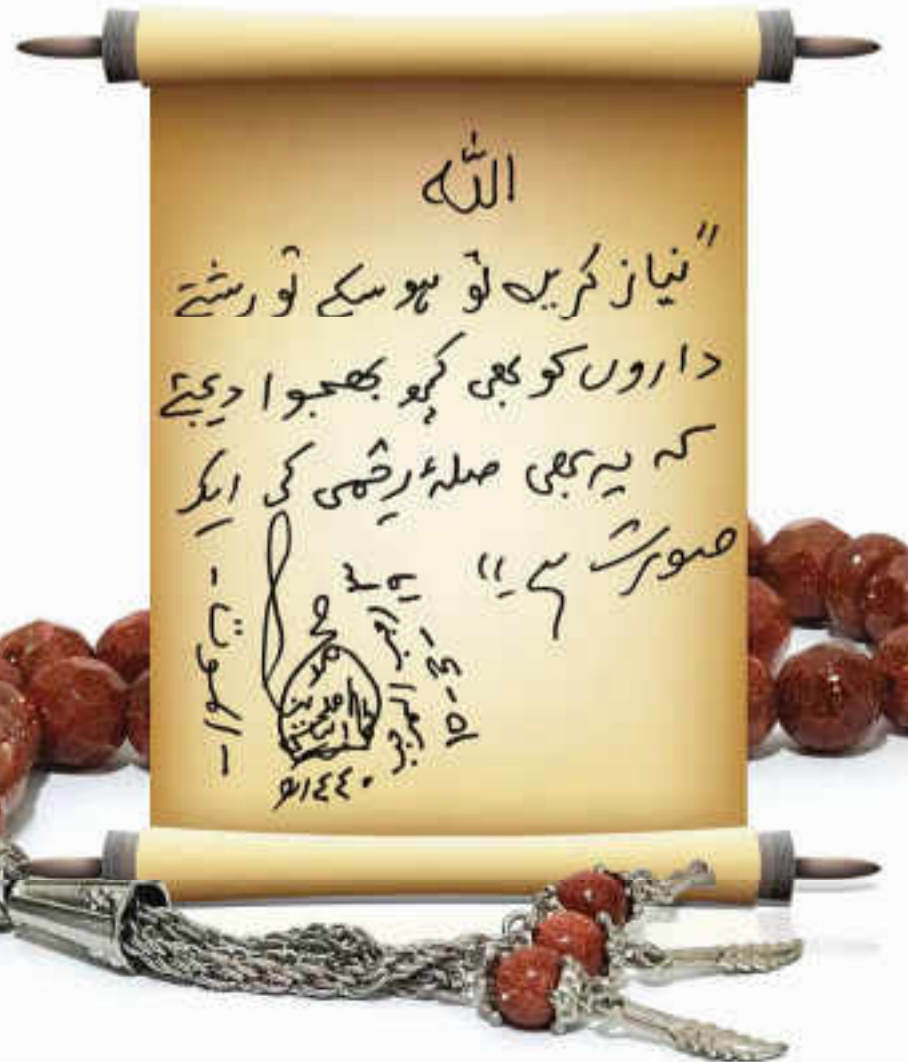 اللہ
"نیاز کریں تو ہو سکے تو رشتے
داروں کو بھی کچھ بھجوا دیجئے
کہ یہ بھی صلۂ رحمی کی ایک
صورت ہے"
رجب المرجب
١٤٤٠ھ